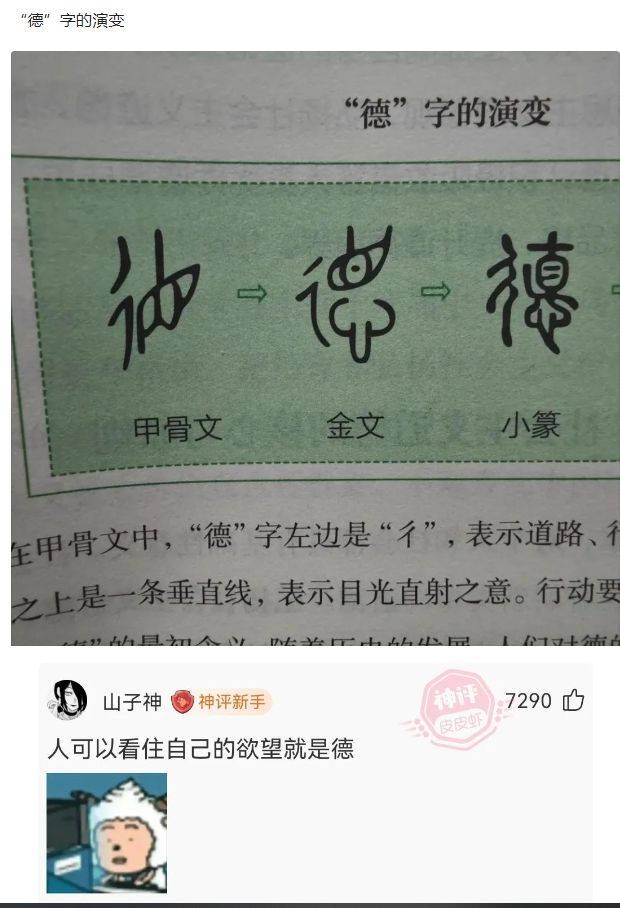 “德”字的演变
“德”字的演变
甲骨文 金文 小篆
在甲骨文中，“德”字左边是“彳”，表示道路、行
之上是一条垂直线，表示目光直射之意。行动要
德”的最初含义 随着历史的发展 人们对德的
山子神 神评新手 神评 皮皮虾 7290
人可以看住自己的欲望就是德